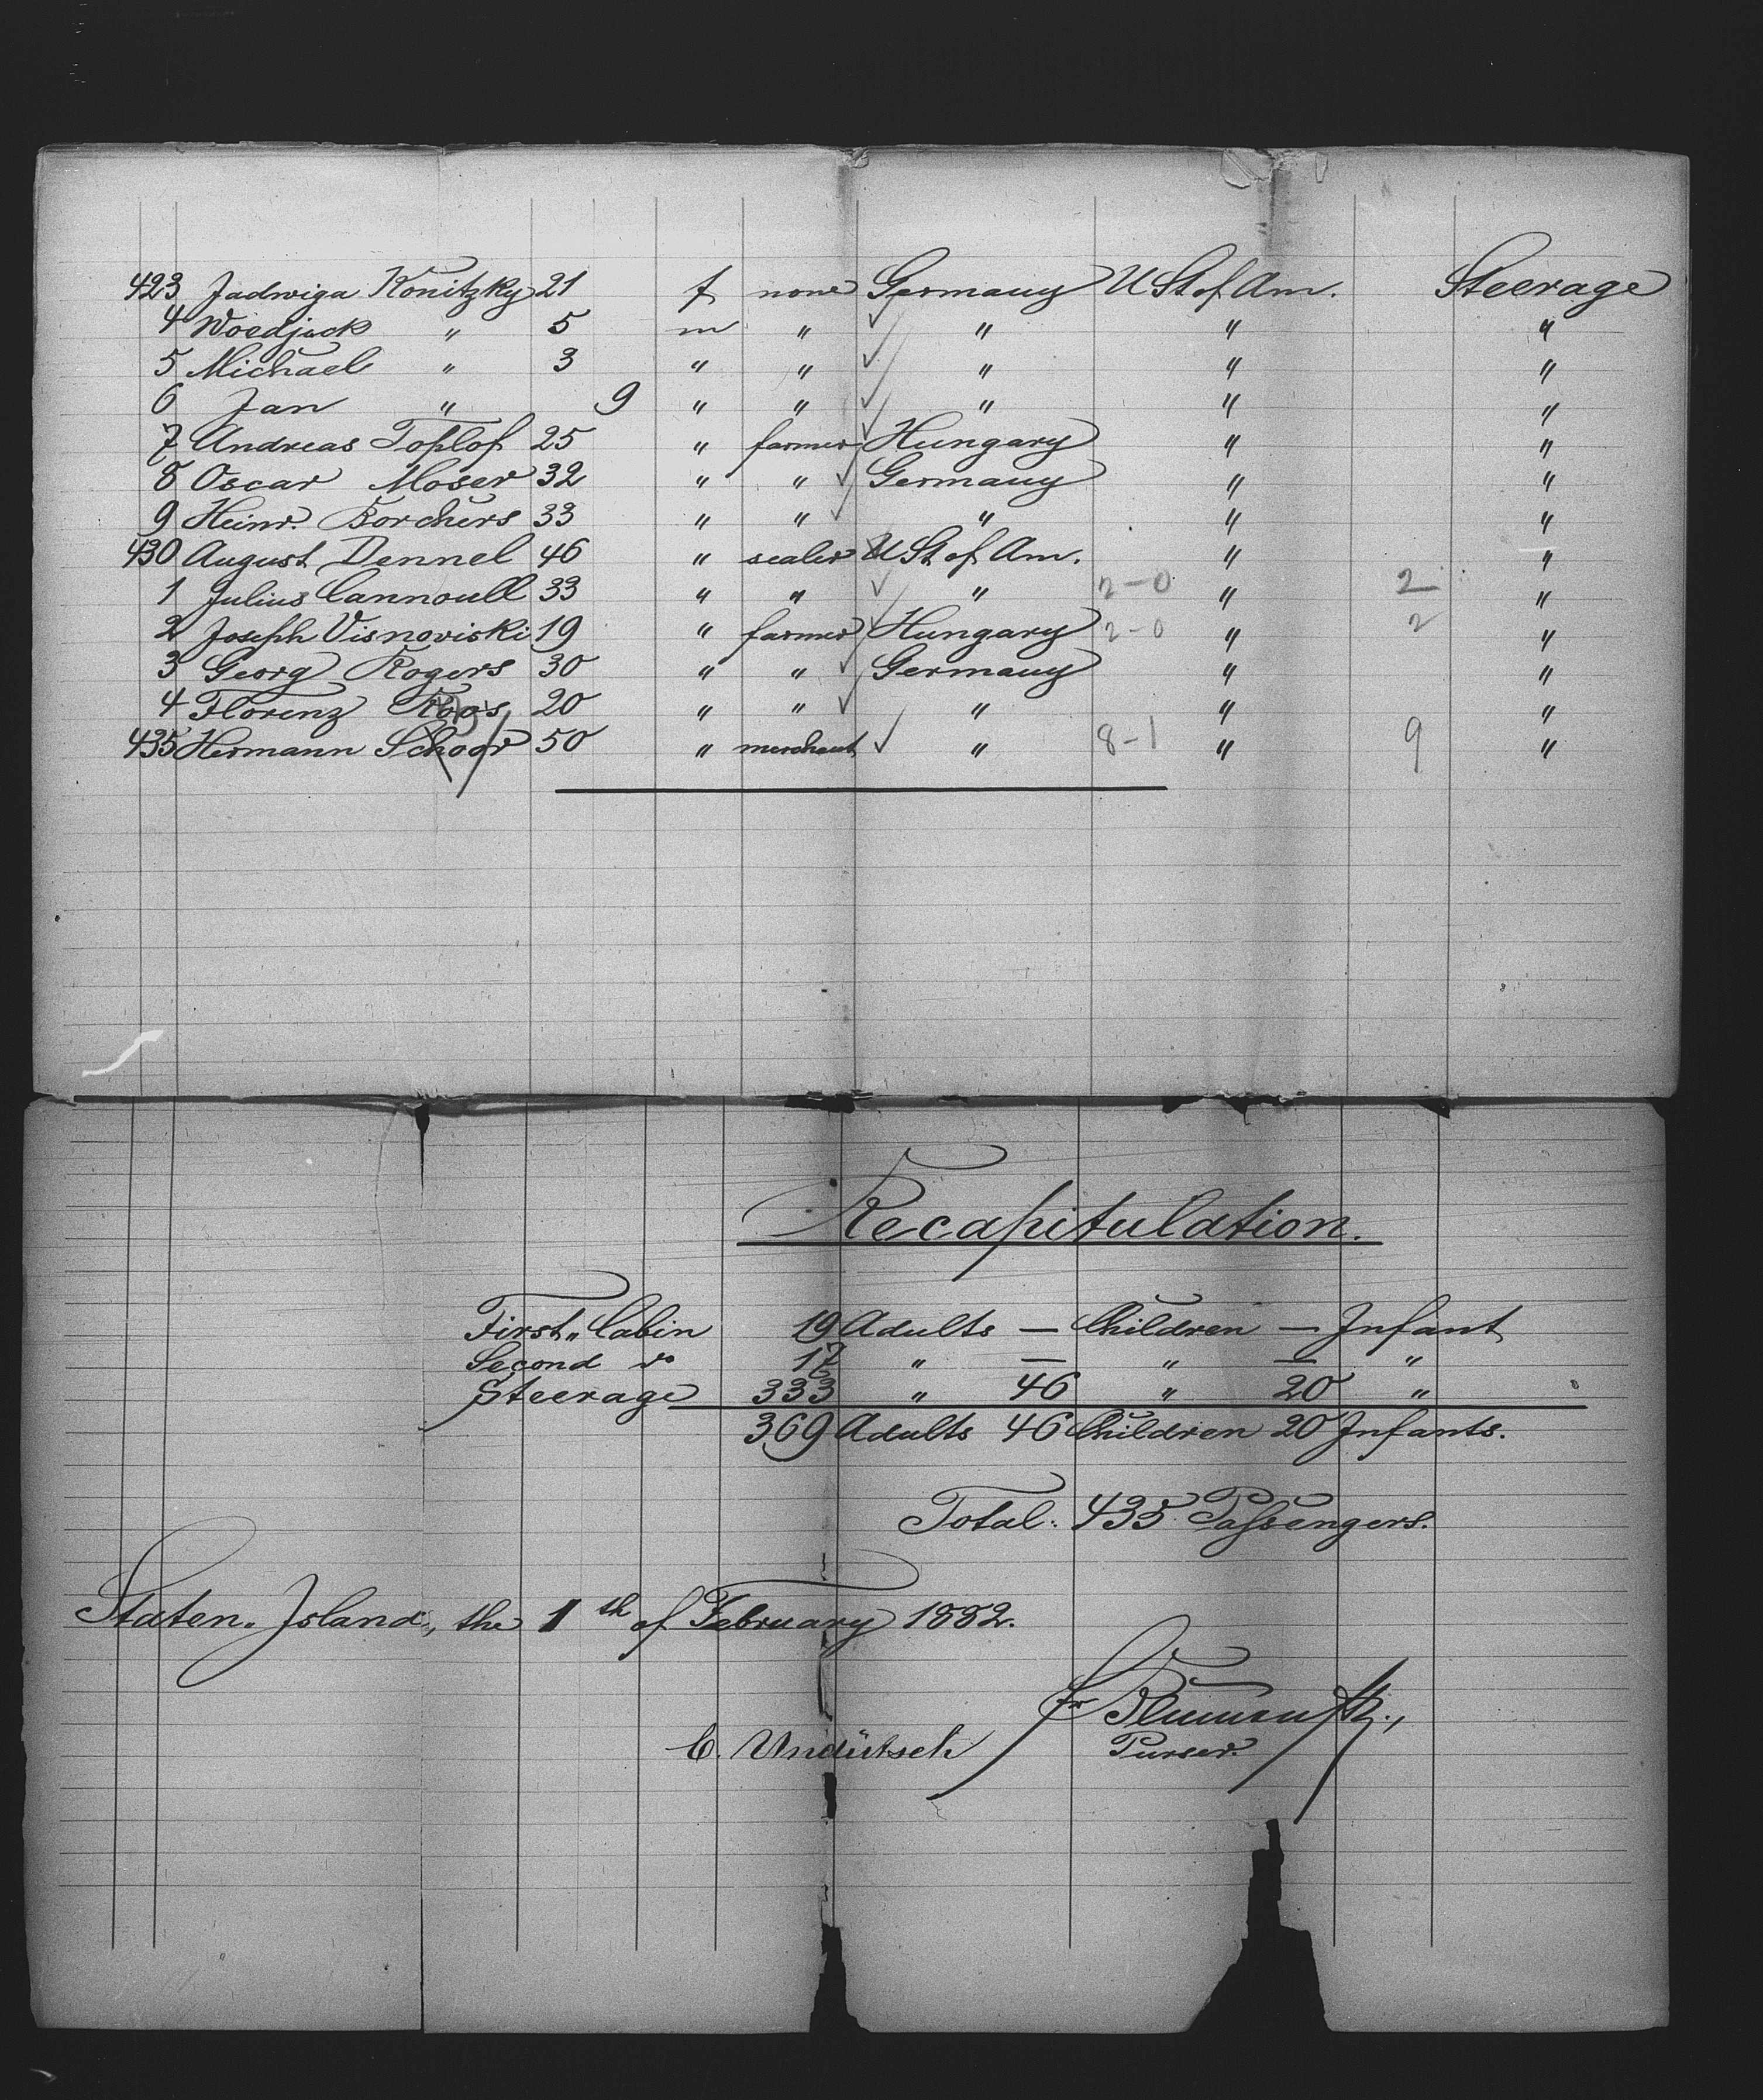 423 Jadwiga Konitzky 21 f none Germany U St of Am. Steerage
4 Woedjack " 5 m " " " "
5 Michael " 3 " " " " "
6 Jan " 9 " " " " "
7 Andreas Toplof 25 " farmer Hungary " "
8 Oscar Moser 32 " " Germany " "
9 Heinr. Borchers 33 " " " " "
430 August Dennel 46 " sealer U St of Am. " "
1 Julius Cannoull 33 " " " 2-0 " 2 "
2 Joseph Visnoviski 19 " farmer Hungary 2-0 " 2 "
3 Georg Rogers 30 " " Germany " "
4 Florenz Koos 20 " " " " "
435 Hermann Schoor 50 " merchant " 8-1 " 9 "
Recapitulation.
First " Cabin 19 Adults — Children — Infant
Second do 17 " — " — "
Steerage 333 " 46 " 20 "
369 Adults 46 Children 20 Infants.
Total: 435 Passengers.
Staten Island, the 1th of February 1882.
C. Undütsch
Purser.